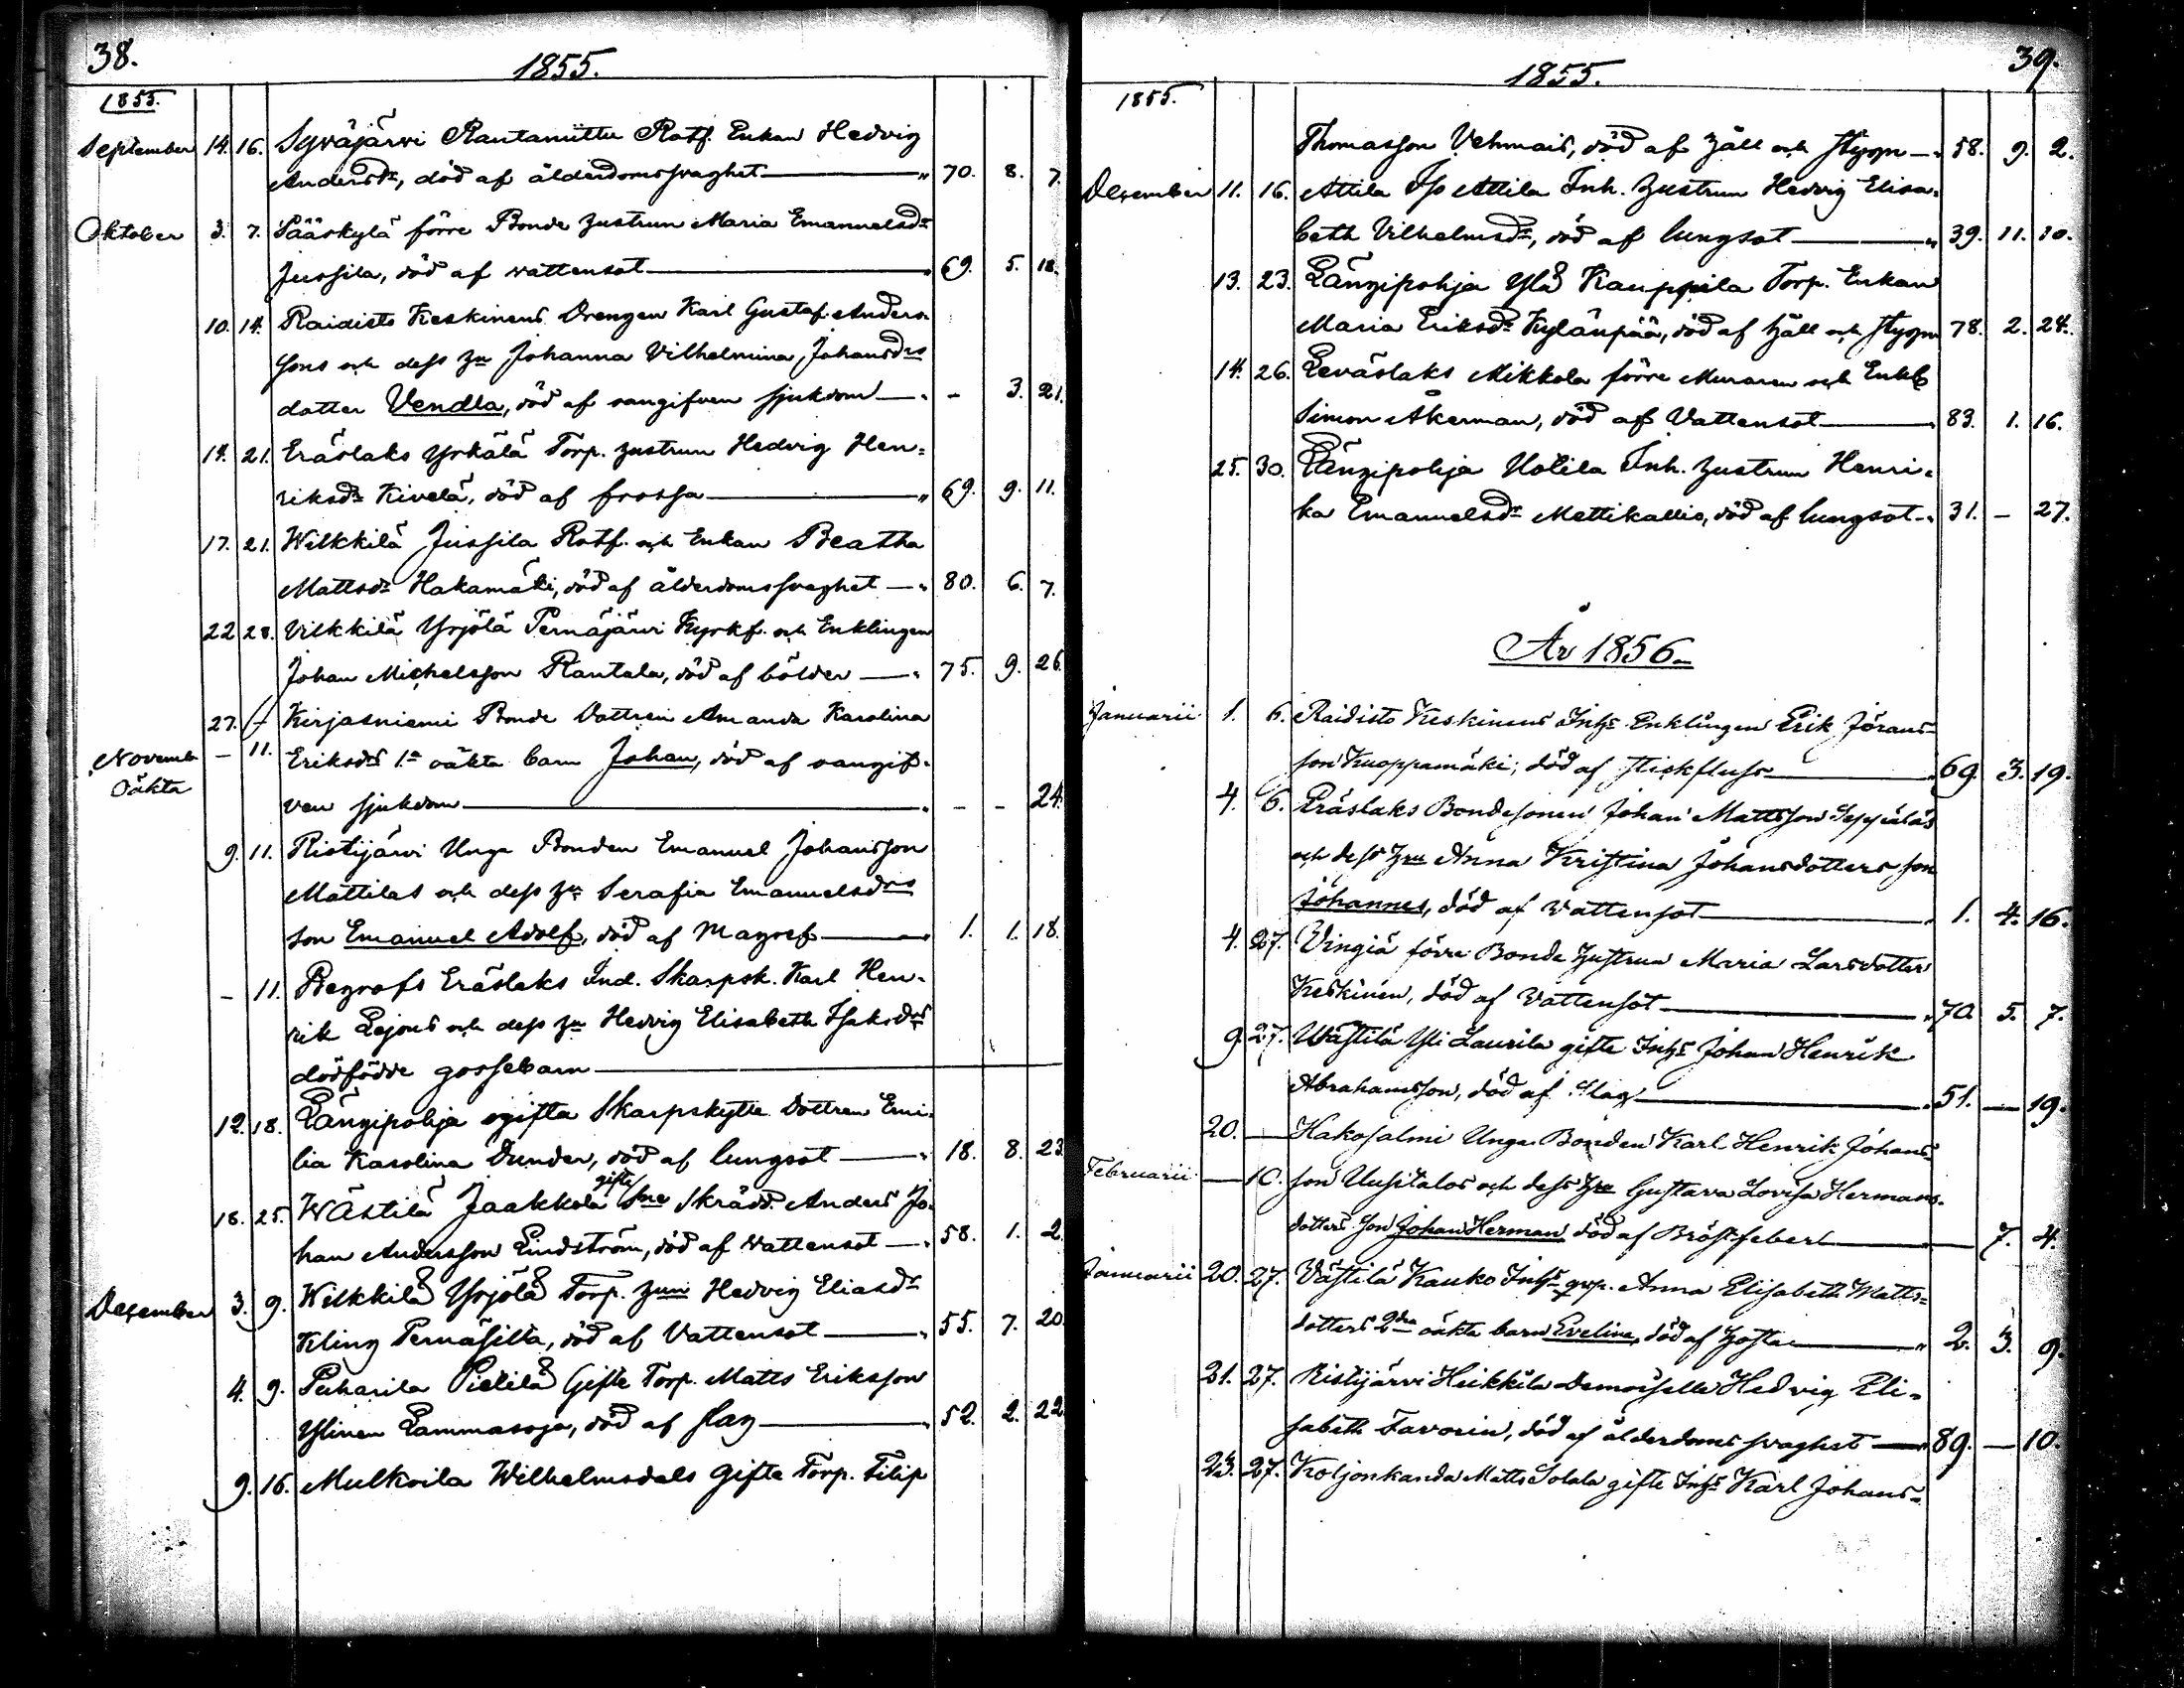 38.
1855.
1855.
September 14. 16. Syväjärvi Rantaniittu Rotf. Enkan Hedvig
Andersdr, död af ålderdomssvaghet — " 70. 8. 7.
Oktober 3. 7. Pääskylä förre Bonde hustrun Maria Emanuelsdr
Jussila, död af vattensot — " 69. 5. 18.
10. 14. Raidisto Keskinens Drengen Karl Gustaf Anders-
sons och dess hu Johanna Vilhelmina Johansdrs
dotter Vendla, död af oangifven sjukdom — " - 3. 21.
14. 21. Eräslaks Yrkälä Torp. hustrun Hedvig Hen-
riksdr Kivelä, död af frossa — " 69. 9. 11.
17. 21. Wilkkilä Jussila Rotf. och Enkan Beatha
Mattsdr Hakamäki, död af ålderdomssvaghet — " 80. 6. 7.
22 28. Vilkkilä Yrjölä Pernäjärvi Kyrkf. och Enklingen
Johan Michelsson Rantala, död af bölder — " 75. 9. 26.
27. - Kirjasniemi Bonde Dottren Amanda Karolina
November - 11. Eriksdrs 1a oäkta barn Johan, död af oangif-
Oäkta
ven sjukdom — " - - 24.
9. 11. Ristijärvi Unge Bonden Emanuel Johansson
Mattilas och dess hu Serafia Emanuelsdrs
son Emanuel Adolf, död af Magref — " 1. 1. 18.
- 11. Begrofs Eräslaks Ind. Skarpsk. Karl Hen-
rik Lejons och dess hu Hedvig Elisabeth Isaksdrs
dödfödde gossebarn —
12. 18. Längipohja ogifta Skarpskytte dottren Emi-
lia Karolina Dunder, död af lungsot — " 18. 8. 23.
gifte
18. 25. Wästilä Jaakkola Sne Skrädd. Anders Jo-
han Andersson Lindström, död af vattensot — " 58. 1. 2.
December 3. 9. Wilkkilä Yrjölä Torp. hun Hedvig Eliasdr
Kling Pernäsilta, död af Vattensot — " 55. 7. 20.
4. 9. Puharila Pietilä Gifte Torp. Matts Eriksson
Ylinen Lammasoja, död af slag — " 52. 2. 22
9. 16. Mulkoila Wilhelmsdals Gifte Torp. Filip
39.
1855.
1855.
Thomasson Vehmais, död af håll och styng — " 58. 9. 2.
December 11. 16. Attila Iso Attila Inh. hustrun Hedvig Elisa-
beth Vilhelmsdr, död af lungsot — " 39. 11. 10.
13. 23. Längipohja Ylä Kauppila Torp. Enkan
Maria Eriksdr Kylänpää, död af håll och styng 78. 2. 24.
14. 26. Leväslaks Mikkola förre Muraren och Enkl
Simon Åkerman, död af Vattensot — " 83. 1. 16.
25. 30. Längipohja Uotila Inh. hustrun Henri-
ka Emanuelsdr Mettikallio, död af lungsot " 31. - 27.
År 1856.
Januarii 1. 6. Raidisto Keskinens Inhs Enklingen Erik Jörans-
son Kuoppamäki, död af Stickfluss — " 69 3. 19.
4. 6. Eräslaks Bondesonen Johan Mattsson Seppäläs
och dess hru Anna Kristina Johansdotters son
Johannes, död af Vattensot — " 1. 4. 16.
4. 27. Vingiä förre Bonde Hustrun Maria Larsdotter
Keskinen, död af Vattensot — " 70. 5. 7.
9. 27. Wästilä Yli Laurila gifte Inhs Johan Henrik
Abrahamsson, död af Slag — " 51. — 19.
20. — Hakosalmi Unge Bonden Karl Henrik Johans-
Februarii — 10. son Uusitalos och dess hru Gustava Lovisa Hermans-
dotters Son Johan Herman död af Bröstfeber — — 7. 4.
Januarii 20. 27. Västilä Kauko Inhs qvp. Anna Elisabeth Matts-
dotters 2dra oäkta barn Evelina, död af Hosta — " 2. 3. 9.
21. 27. Ristijärvi Heikkilä Demoiselle Hedvig Eli-
sabeth Favorin, död af ålderdoms svaghet — " 89. — 10.
23. 27. Koljonkanda Matts Solala gifte Inhs Karl Johans-